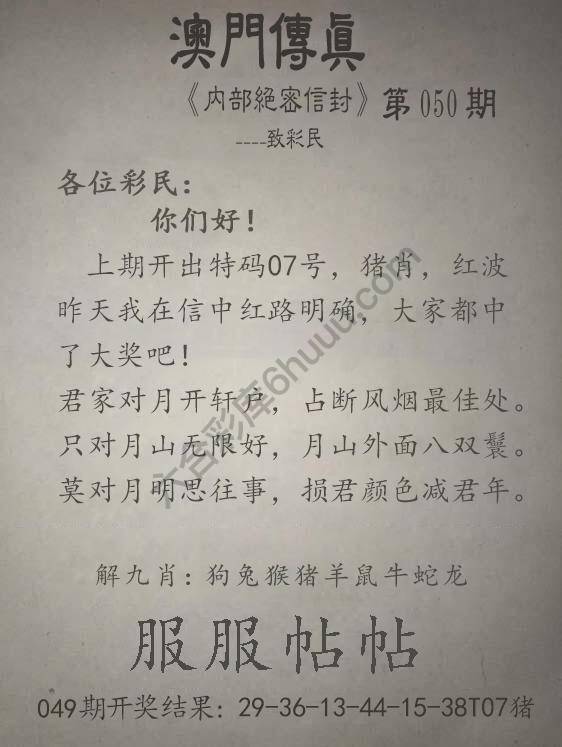 澳門傳眞
《内部絕密信封》第050期
----致彩民
各位彩民：
你们好！
上期开出特码07号，猪肖，红波
昨天我在信中红路明确，大家都中
了大奖吧！
君家对月开轩户，占断风烟最佳处。
只对月山无限好，月山外面八双鬟。
莫对月明思往事，损君颜色减君年。
六合彩库6huuu.com
解九肖：狗兔猴猪羊鼠牛蛇龙
服服帖帖
049期开奖结果：29-36-13-44-15-38T07猪